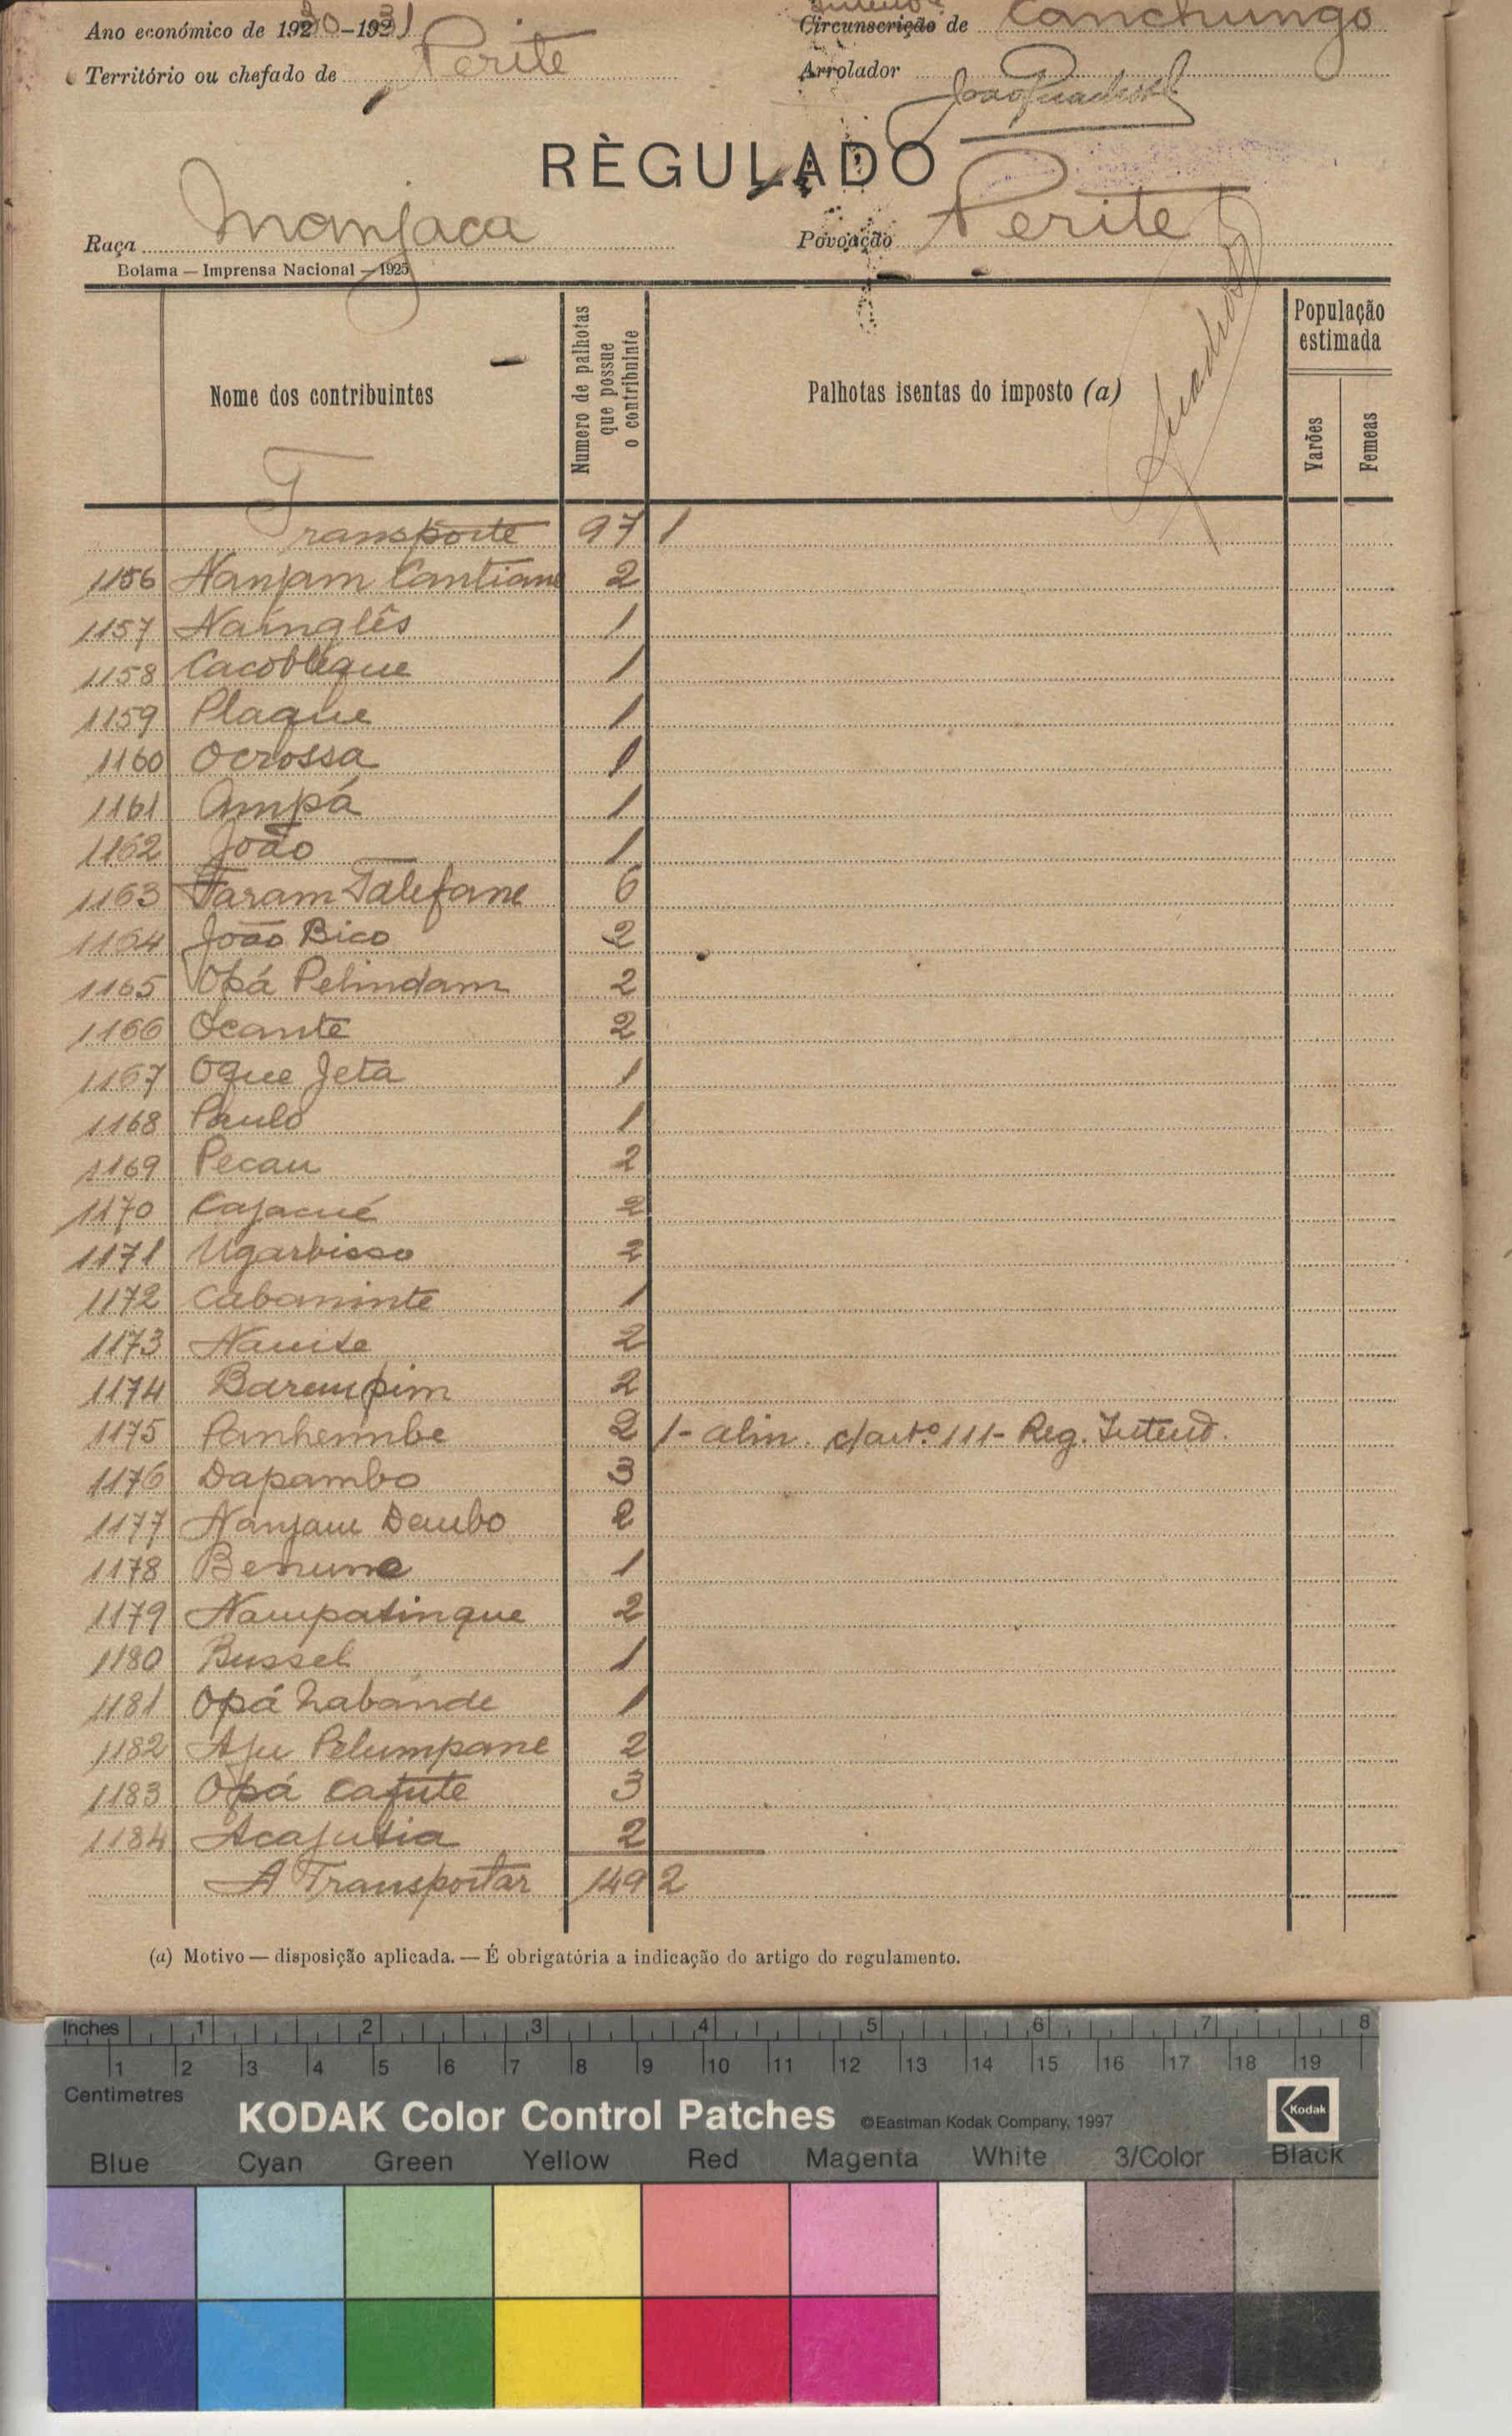 Ano económico de 1930-1931
Circunscrição de Canchungo
Território ou chefado de Perite
Arrolador João
RÈGULADO
Raça Manjaca
Povoação Perite
Bolama — Imprensa Nacional — 1925
Nome dos contribuintes
Numero de palhotas que possue o contribuinte
Palhotas isentas do imposto (a)
População estimada
Varões
Femeas
Transporte 97 1
1156 Nanjam Cantiane 2
1157 Naínglês 1
1158 Cacobleque 1
1159 Plaque 1
1160 Ocrossa 1
1161 Ampá 1
1162 João 1
1163 Taram Talefane 6
1164 João Bico 2
1165 Opá Pelindam 2
1166 Ocante 2
1167 Oque Jeta 1
1168 Paulo 1
1169 Pecau 2
1170 Cajacué 2
1171 Ugarbisso 2
1172 Cabaninte 1
1173 Nauite 2
1174 Barempim 2
1175 Panhembe 2 1- alin. c/artº 111- Reg. Intend.
1176 Dapambo 3
1177 Nanjam Dembo 2
1178 Benune 1
1179 Nampatinque 2
1180 Bussel 1
1181 Opá Labande 1
1182 Aju Pelumpane 2
1183 Opá Cafute 3
1184 Acajutia 2
A Transportar 149 2
(a) Motivo — disposição aplicada. — É obrigatória a indicação do artigo do regulamento.
Inches 1 2 3 4 5 6 7 8
1 2 3 4 5 6 7 8 9 10 11 12 13 14 15 16 17 18 19
Centimetres
KODAK Color Control Patches ©Eastman Kodak Company, 1997 Kodak
Blue Cyan Green Yellow Red Magenta White 3/Color Black